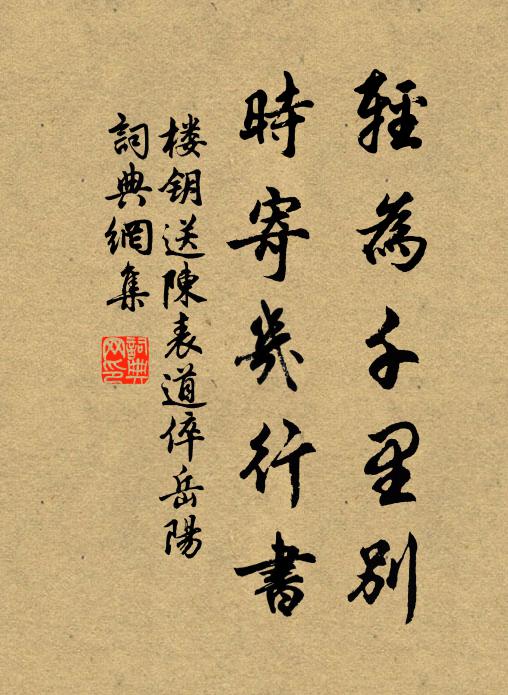 輕為千里別
時寄幾行書
楼钥送陳表道倅岳陽
詞典網集
詞典
网印